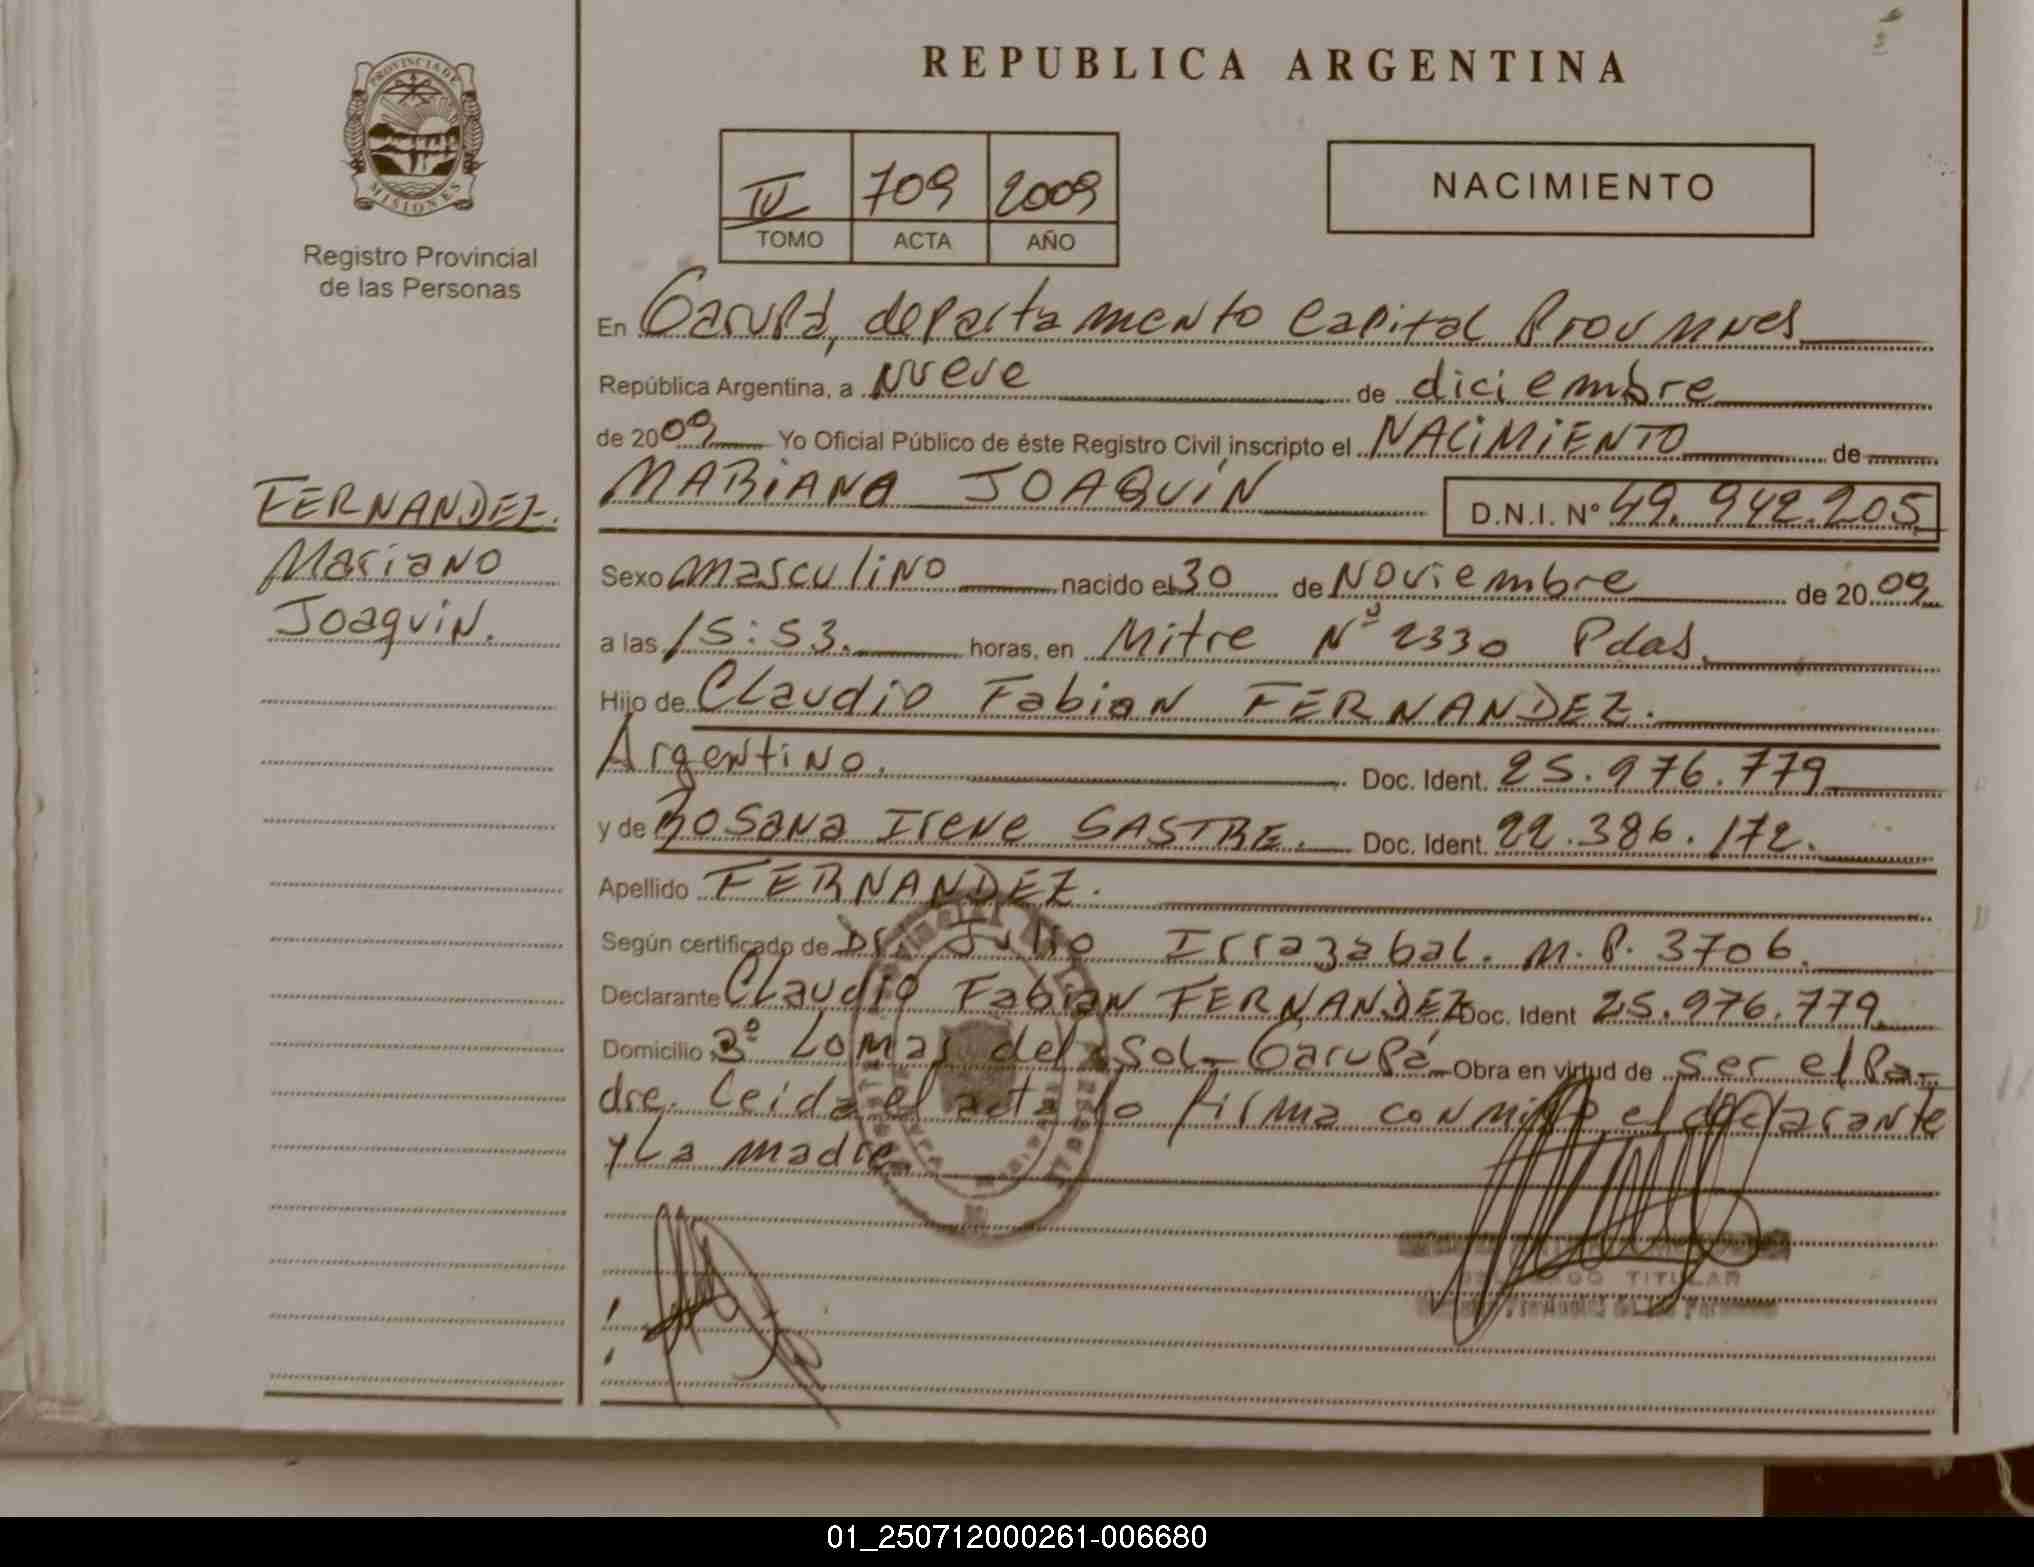 PROVINCIA DE
MISIONES
Registro Provincial
de las Personas
FERNANDEZ.
Mariano
Joaquin.
REPUBLICA ARGENTINA
IV 709 2009
TOMO ACTA AÑO
NACIMIENTO
En Garupá, departamento Capital Prov Mnes
República Argentina, a nueve de diciembre
de 2009 Yo Oficial Público de éste Registro Civil inscripto el NACIMIENTO de
MARIANO JOAQUIN D.N.I. Nº 49.942.205
Sexo masculino nacido el 30 de Noviembre de 2009
a las 15:53. horas, en Mitre Nº 2330 Pdas.
Hijo de Claudio Fabian FERNANDEZ.
Argentino. Doc. Ident. 25.976.779
y de Rosana Irene SASTRE. Doc. Ident. 22.386.172.
Apellido FERNANDEZ.
Según certificado de Dr. Julio Irrazabal. M.P. 3706.
Declarante Claudio Fabian FERNANDEZ Doc. Ident 25.976.779
Domicilio Bº Lomas del Sol - Garupá Obra en virtud de ser el Pa-
dre. Leida el acta lo firma conmigo el declarante
y La madre
TITULAR
01_250712000261-006680